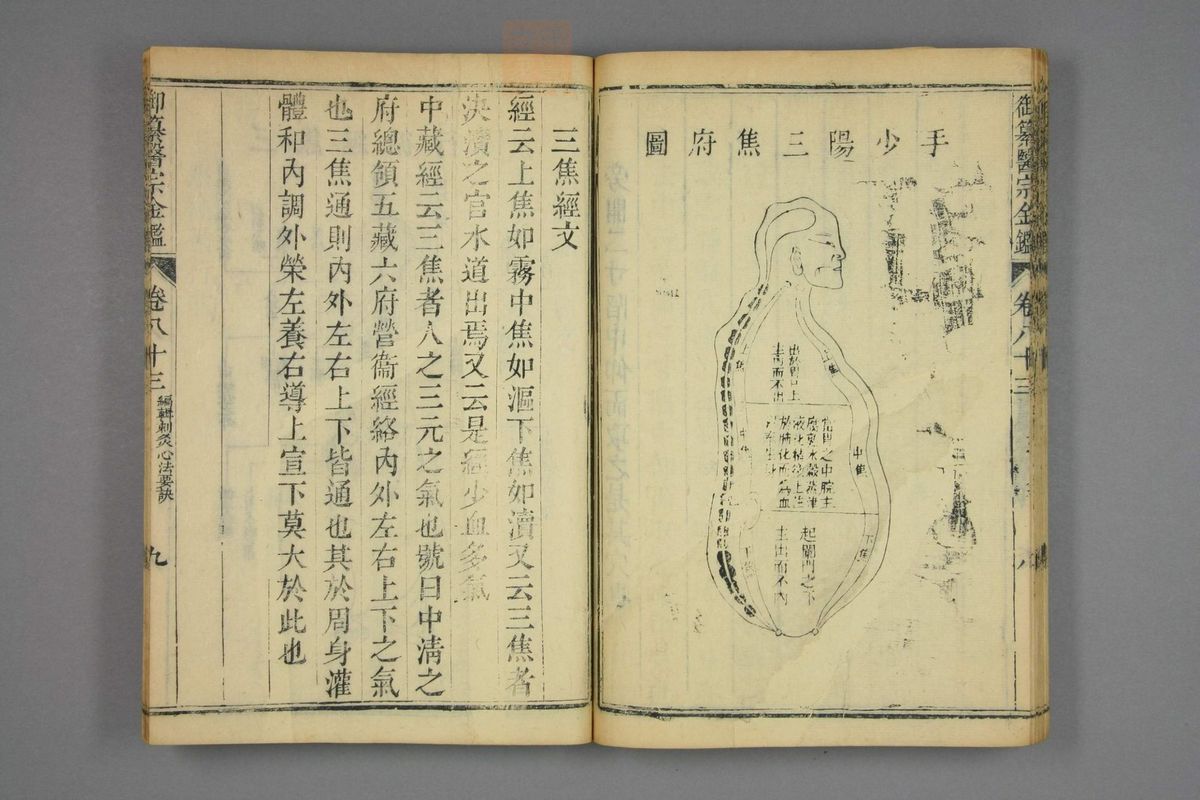 御纂醫宗金鑑
卷八十三
八
手少陽三焦府圖
上焦
出於胃口上
主內而不出
上焦
中焦
當胃之中脘主
腐熟水穀蒸津
液化精微上注
於肺化而為血
中焦
下焦
起闌門之下
主出而不內
下焦
三焦經文
經云上焦如霧中焦如漚下焦如瀆又云三焦者
決瀆之官水道出焉又云是經少血多氣
中藏經云三焦者人之三元之氣也號曰中清之
府總領五藏六府營衞經絡內外左右上下之氣
也三焦通則內外左右上下皆通也其於周身灌
體和內調外榮左養右導上宣下莫大於此也
御纂醫宗金鑑
卷八十三
編輯刺灸心法要訣
九